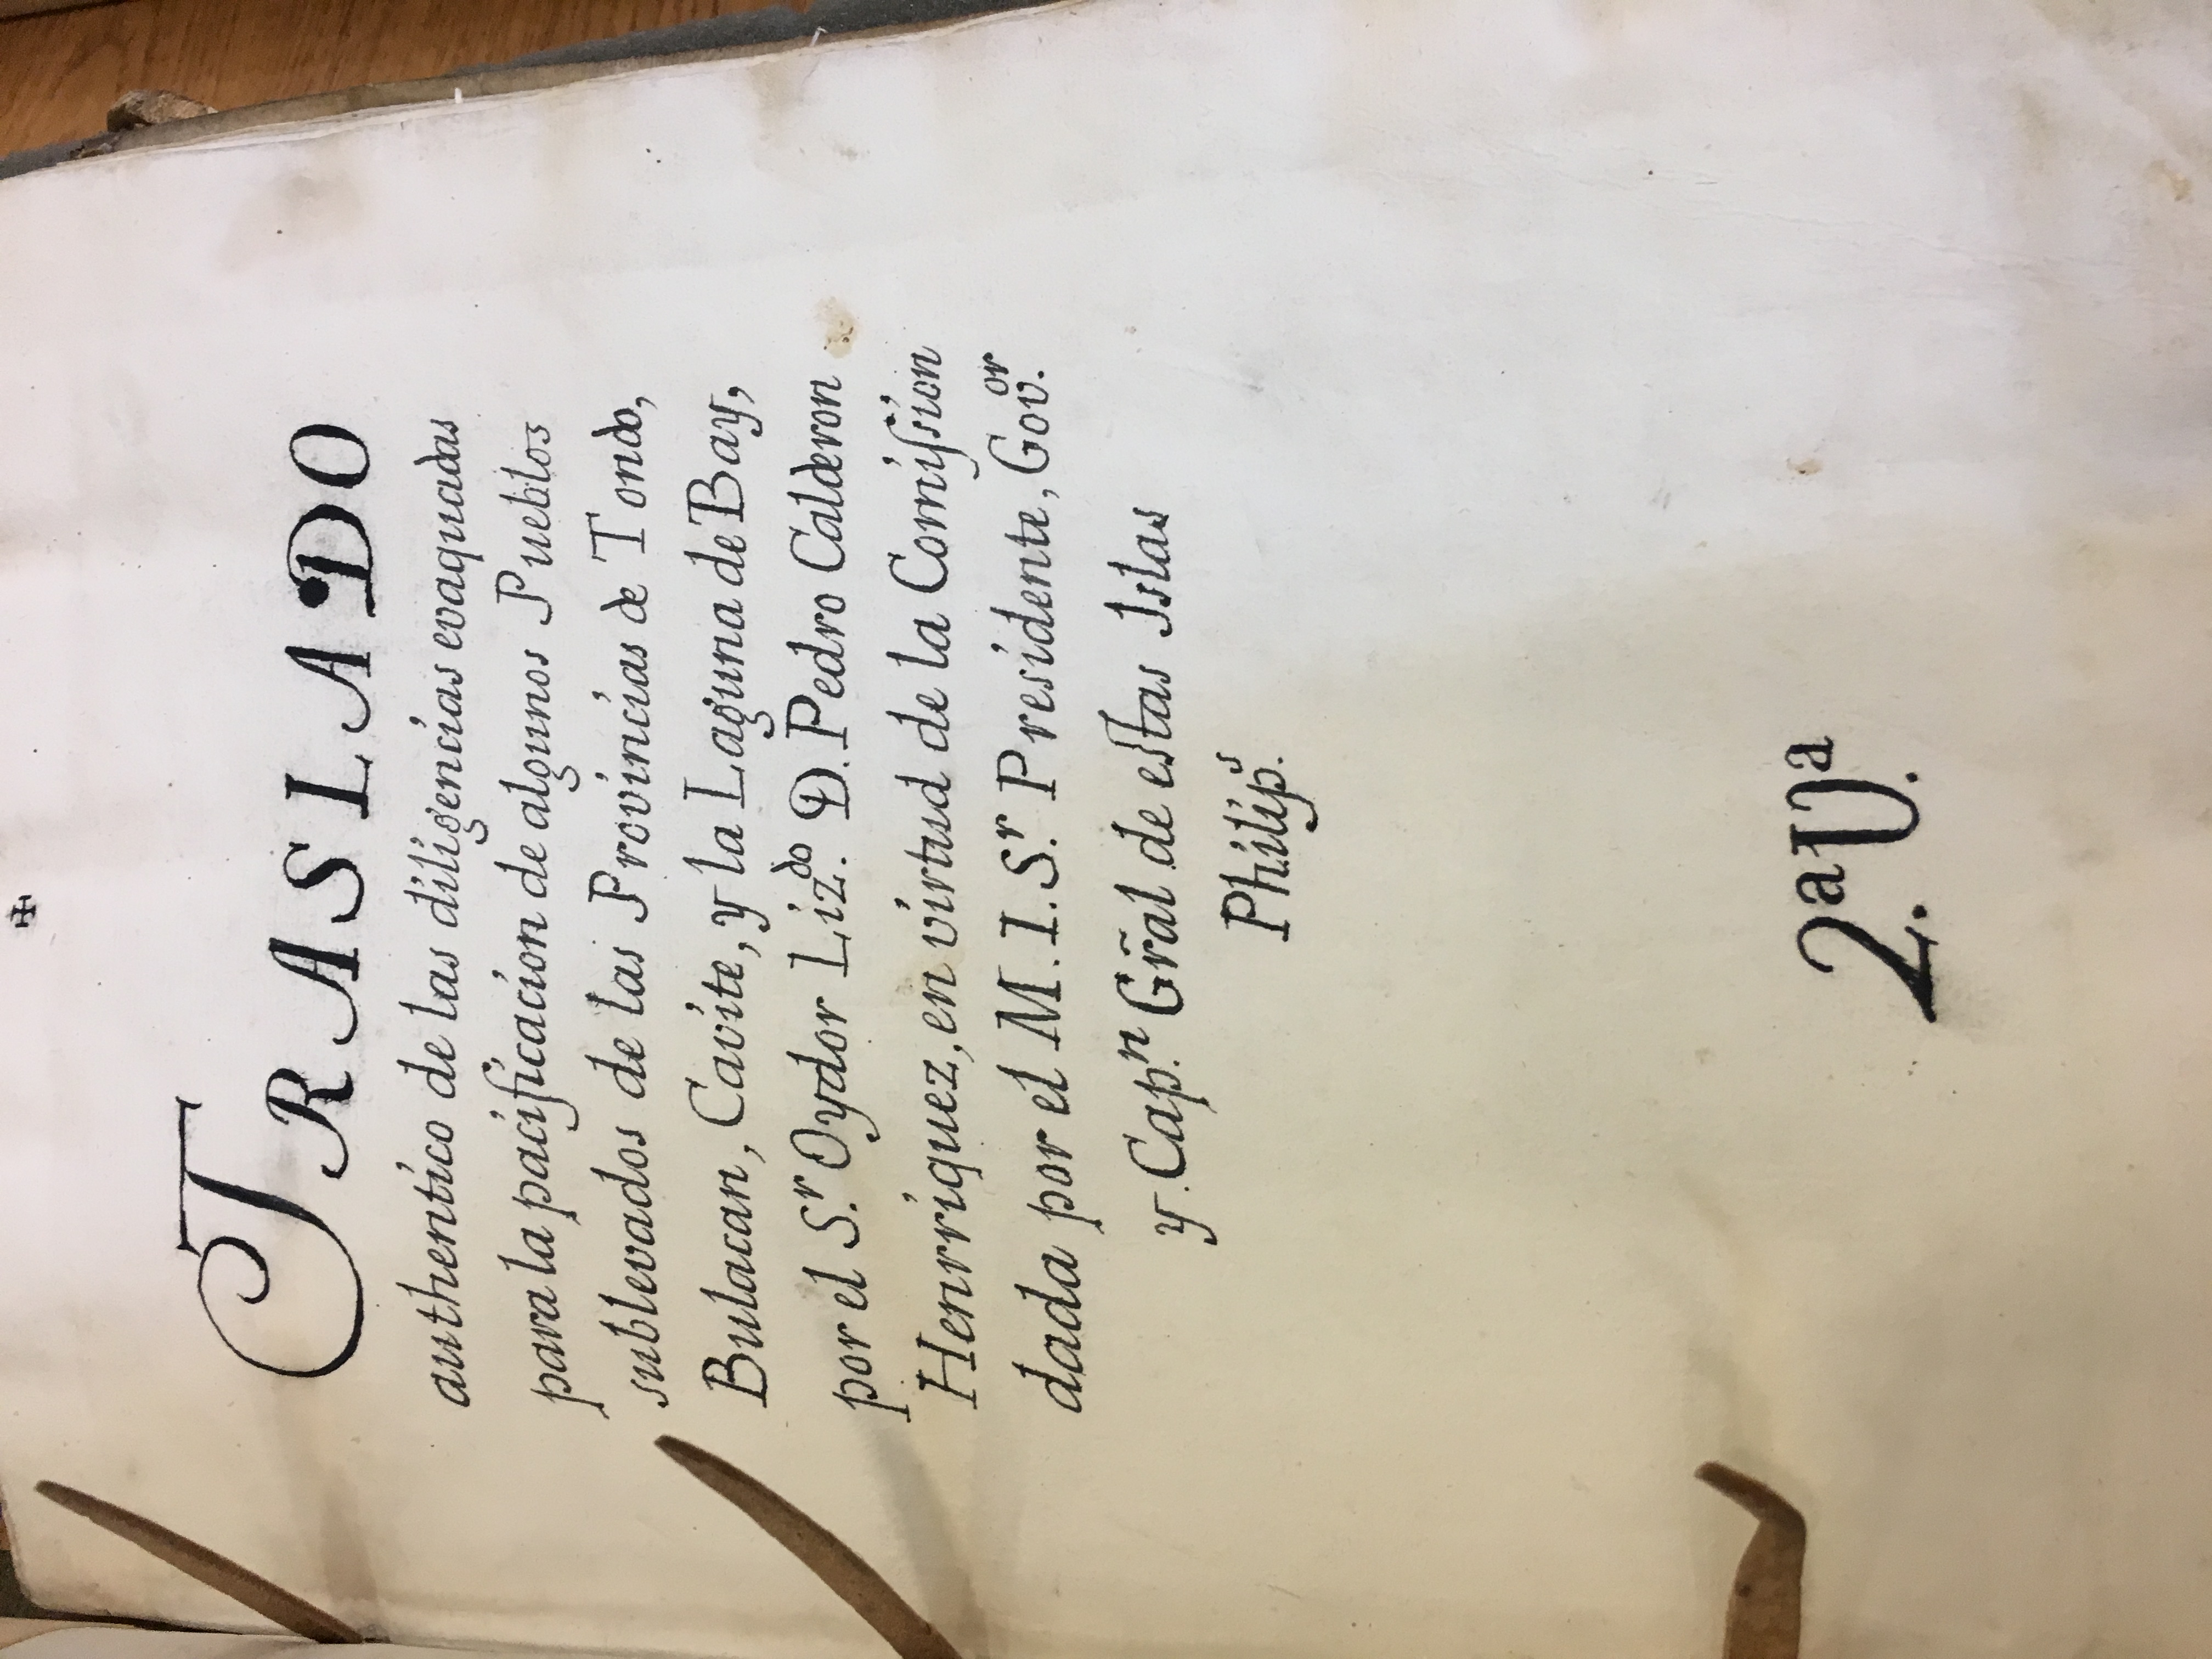 ✠
TRASLADO
authentico de las diligencias evaquadas
para la pacificacion de algunos Pueblos
sublevados de las Provincias de Tondo,
Bulacan, Cavite, y la Laguna de Bay,
por el S.r Oydor Liz.do D. Pedro Calderon
Henrriquez, en virtud de la Comiſsion
dada por el M. I. S.r Presidente, Gov.or
y Cap.n Gr̃al de eſtas Islas
Philip.s
2.a V.a